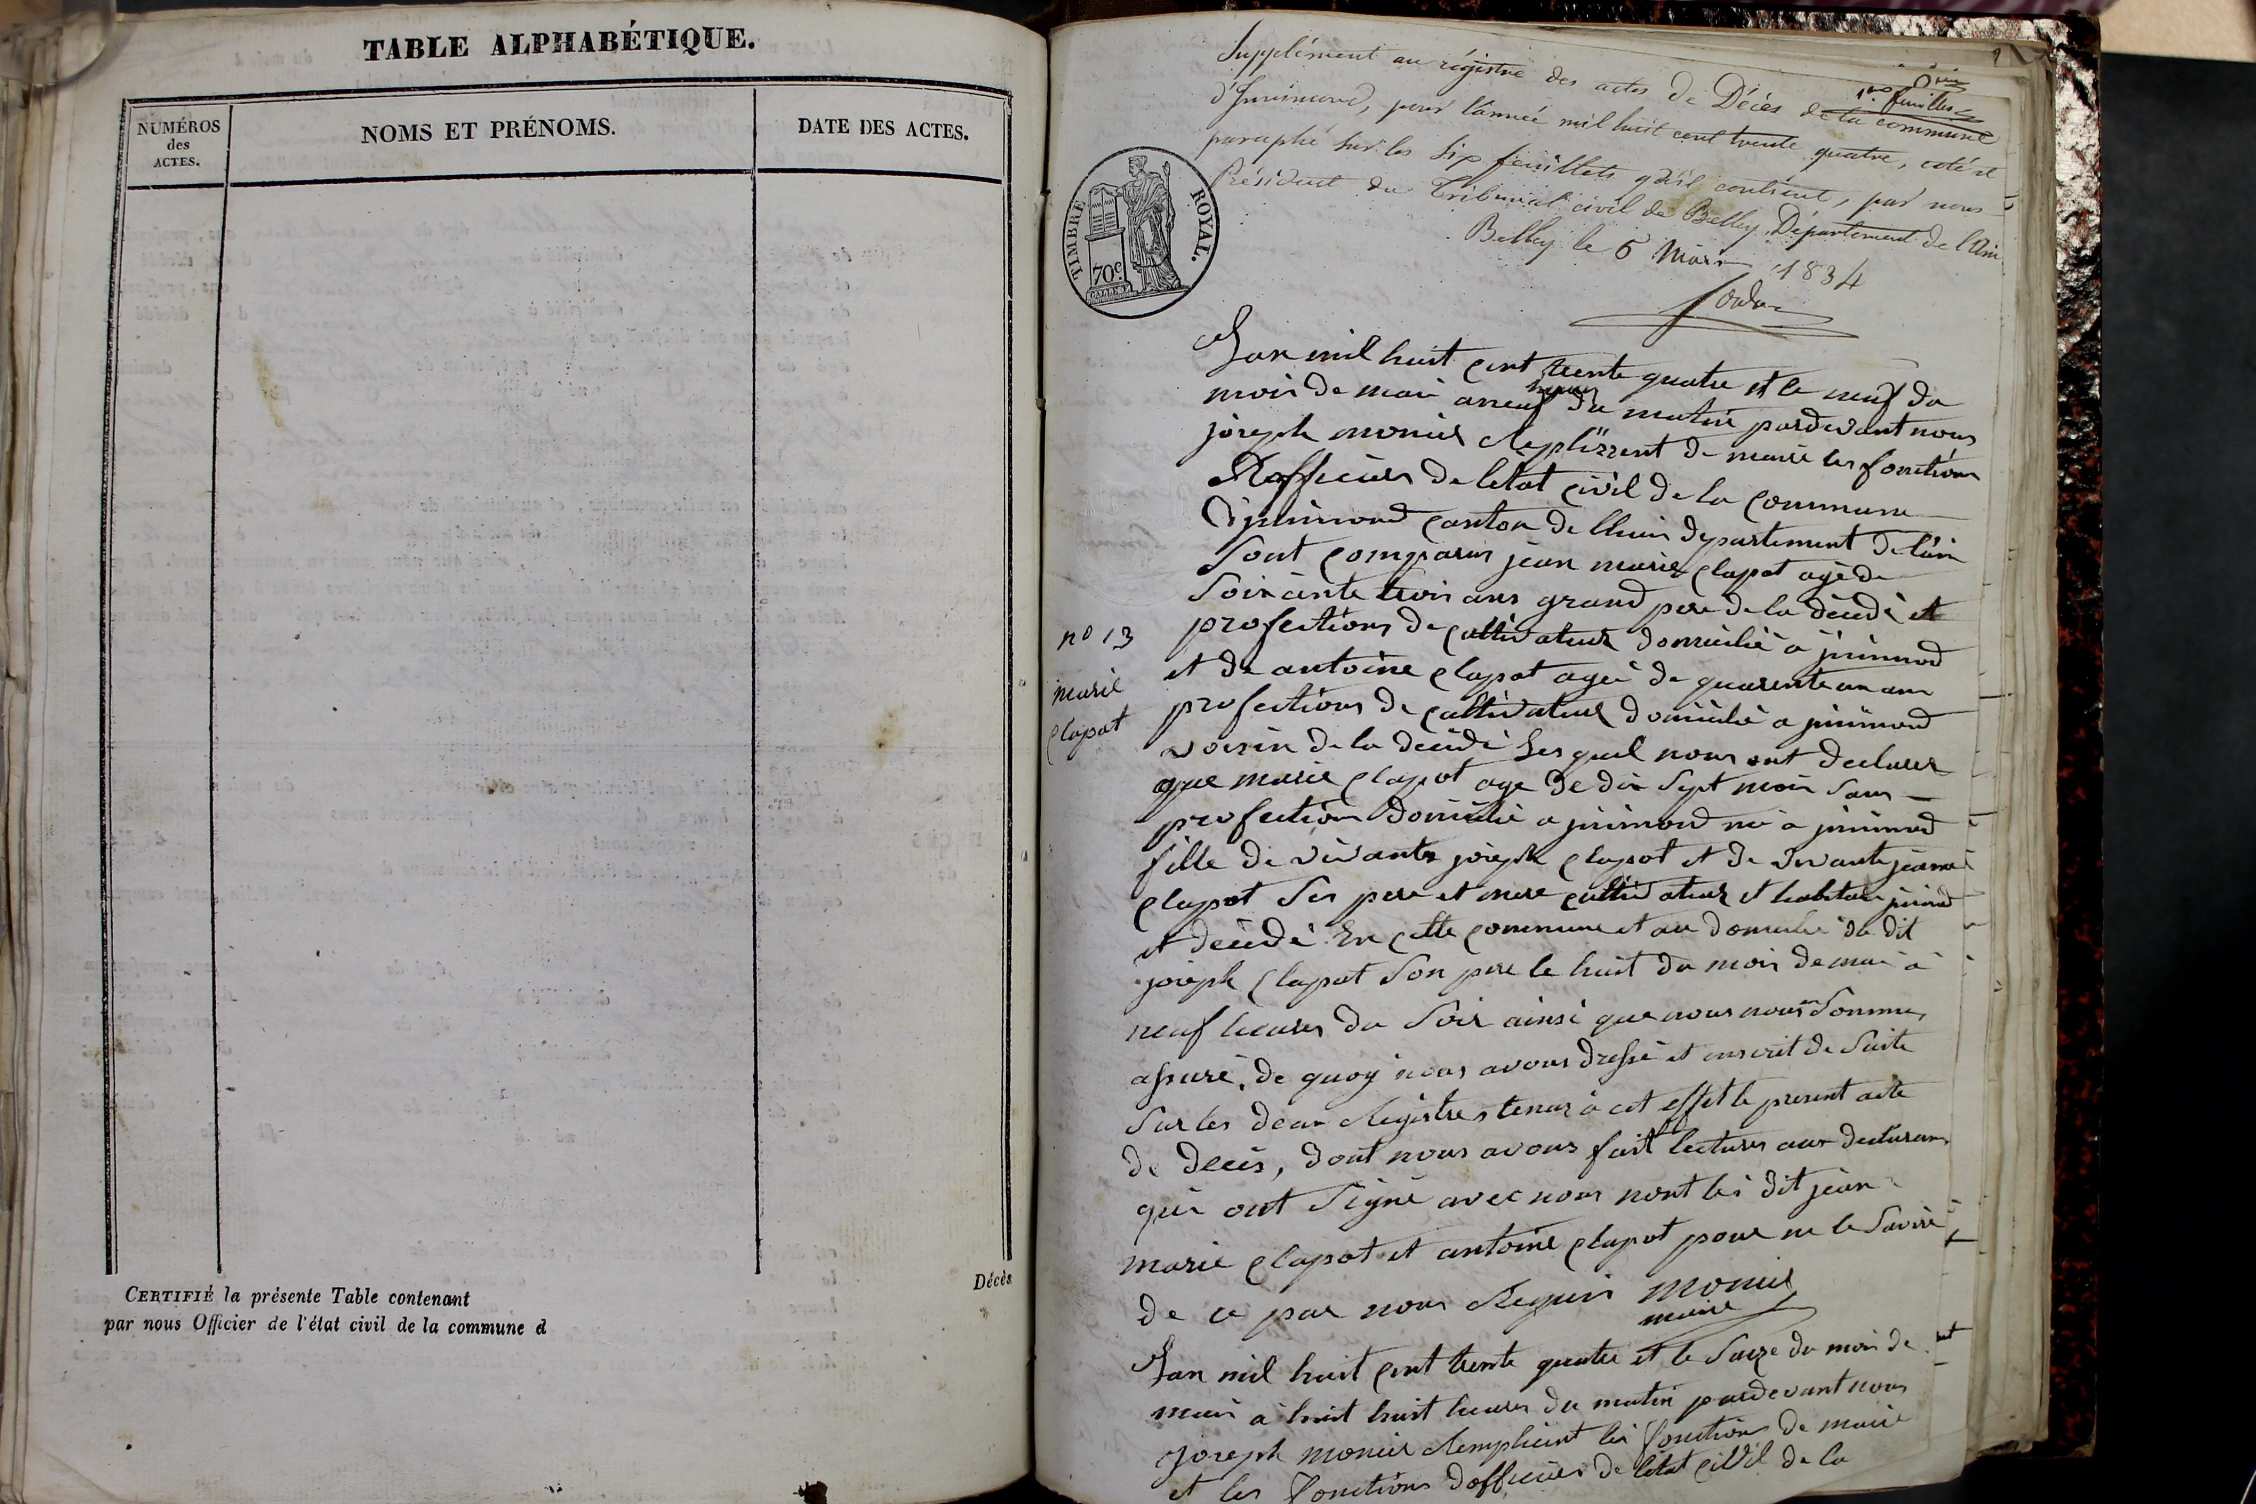 TABLE ALPHABÉTIQUE.
NUMÉROS
des
ACTES.
NOMS ET PRÉNOMS.
DATE DES ACTES.
CERTIFIÉ la présente Table contenant
par nous Officier de l'état civil de la commune d
Décès
1
1er feuillet
Supplément au régistre des actes de Décès de la commune
d'Innimond, pour l'année mil huit cent trente quatre, coté et
paraphé sur les six feuillets qu'il contient, par nous
Président du Tribunal civil de Belley, Département de l'Ain
Belley le 6 Mars 1834
TIMBRE ROYAL.
70c.
Lan mil huit cent trente quatre et le neuf du
mois de mai aneuf heures du matin pardevant nous
joseph monier de maire les fonctions
Dofficier de letat civil de la commune
djnimond canton de lhuis departement de lain
Sont comparus jean marie clapot agé de
Soixante trois ans grand pere de la décédé et
profections de cultivateur domicilié à jnimond
et de antoine clapot agé de quarente un ans
profections de cultivateur domicilié a jnimond
voisin de la décédé Les quel nous ont declarer
que marie clapot age de dix Sept mois Sans
profection domicilié a jnimond né a jnimond
fille de vivants joseph clapot et de vivante jeanne
clapot Ses pere et mere cultivateur et habitant jnimond
et décédé En cette commune et au domicile du dit
joseph clapot Son pere le huit du mois de mai à
neuf heures du Soir ainsi que nous nous en Sommes
assuré, de quoy nous avons dressé et inscrit de Suite
Sur les deux Registres tenus à cet effet le present acte
de decès, dont nous avons fait lectures aux declarans
qui ont Signé avec nous nont les dit jean
marie clapot et antoine clapot pour ne le Savoire
de ce par nous Requis monier
maire
nº 13
marie
clapot
Lan mil huit cent trente quatre et le Saize du mois de
mai à huit huit heures du matin pardevant nous
joseph monier Remplicent les fonctions de maire
et les fonctions dofficier de letat civil de la